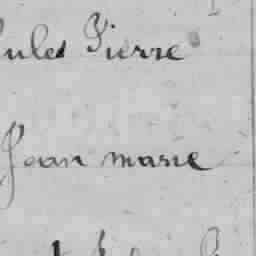 Jules Pierre
Jean marie